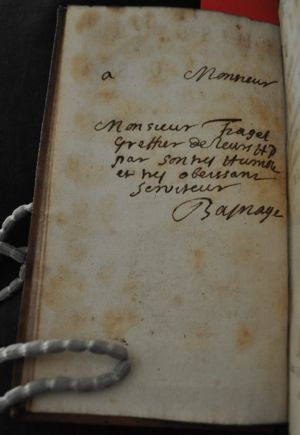 a Monsieur
Monsieur Fagel
Greffier de leurs HP
par son tres Humble
et tres obeissant
Serviteur
Basnage